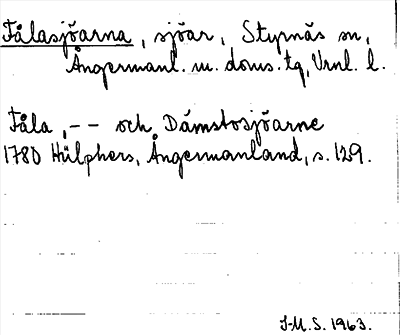 Fålasjöarna, sjöar, Styrnäs sn,
Ångermanl. m. doms. tg, Vrnl. l.
Fåla, -- och Dämstosjöarne
1780 Hülphers, Ångermanland, s. 129.
J-M. S. 1963.